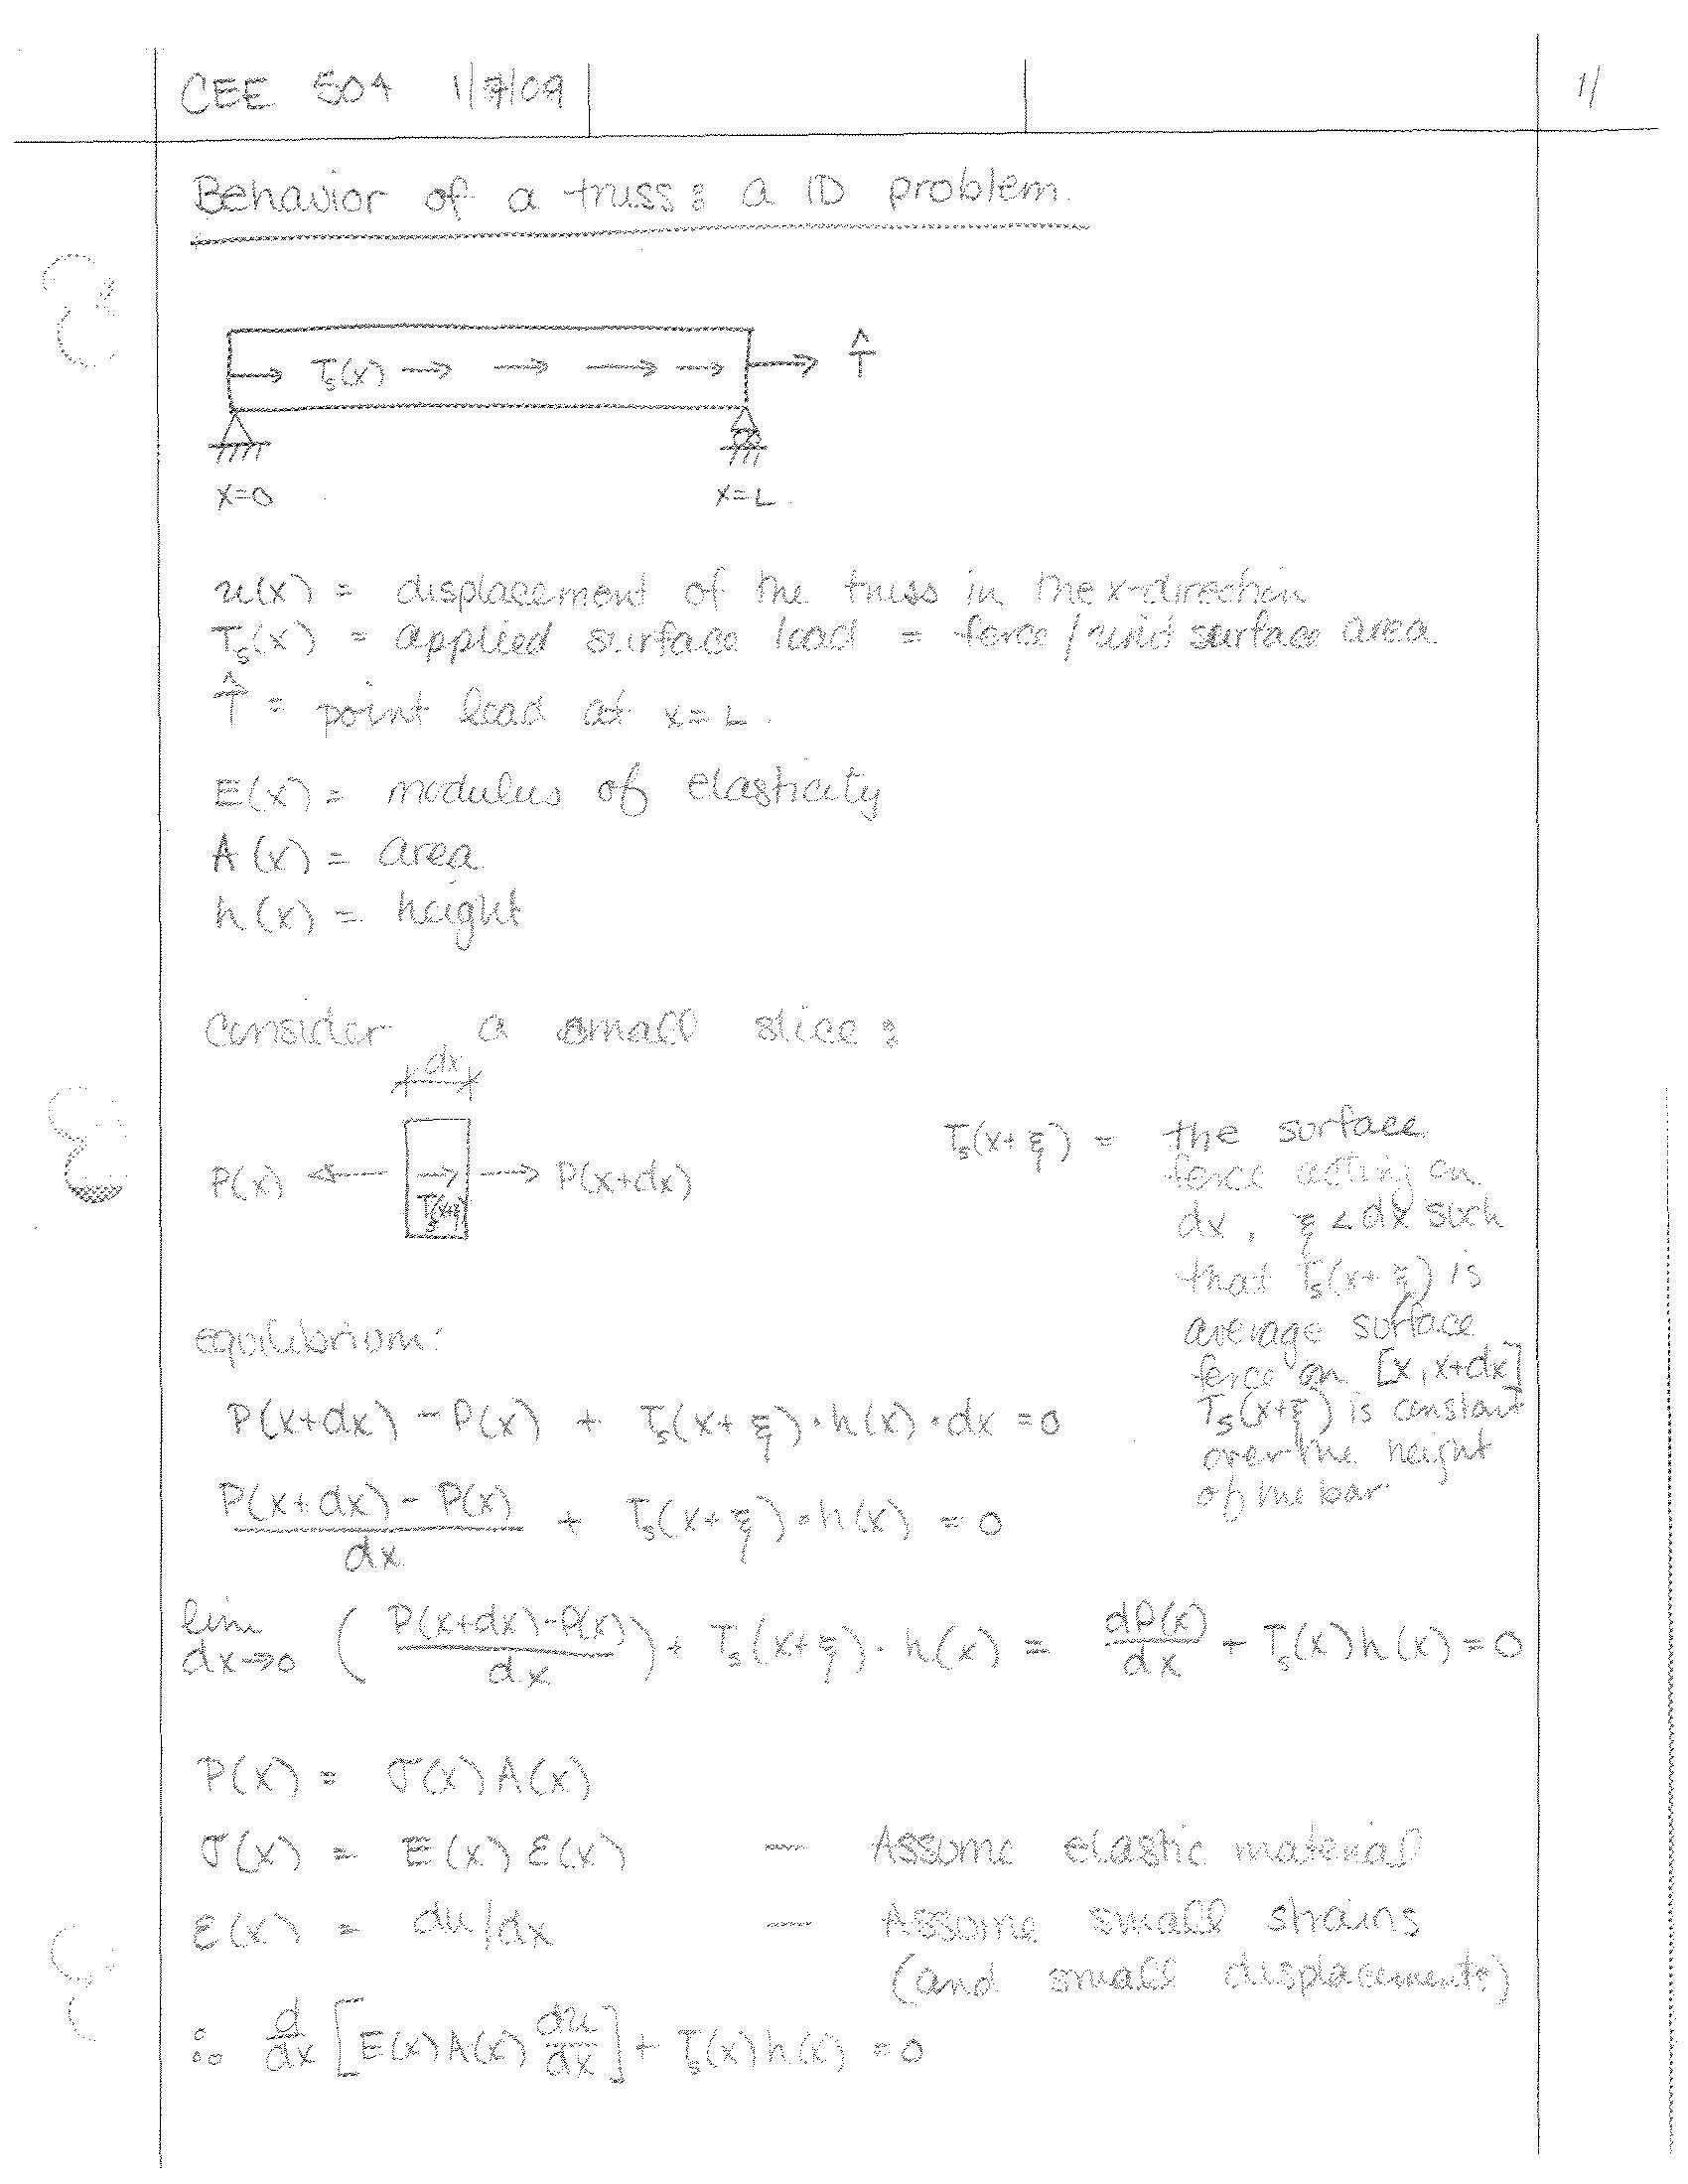 CEE 504 1/7/09 1/
Behavior of a truss: a 1D problem.
Ts(x) T̂
x=0 x=L
u(x) = displacement of the truss in the x-direction
Ts(x) = applied surface load = force/unit surface area
T̂ = point load at x=L.
E(x) = modulus of elasticity
A(x) = area
h(x) = height
Consider a small slice:
dx
P(x) Ts(x+ξ) P(x+dx)
Ts(x+ξ) = the surface
force acting on
dx, ξ<dx such
that Ts(x+ξ) is
average surface
force on [x, x+dx]
Ts(x+ξ) is constant
over the height
of the bar.
equilibrium:
P(x+dx) - P(x) + Ts(x+ξ)·h(x)·dx = 0
(P(x+dx) - P(x))/dx + Ts(x+ξ)·h(x) = 0
lim dx→0 ((P(x+dx)-P(x))/dx) + Ts(x+ξ)·h(x) = dP(x)/dx + Ts(x)h(x) = 0
P(x) = σ(x)A(x)
σ(x) = E(x)ε(x) — Assume elastic material
ε(x) = du/dx — Assume small strains
(and small displacements)
∴ d/dx [E(x)A(x) du/dx] + Ts(x)h(x) = 0